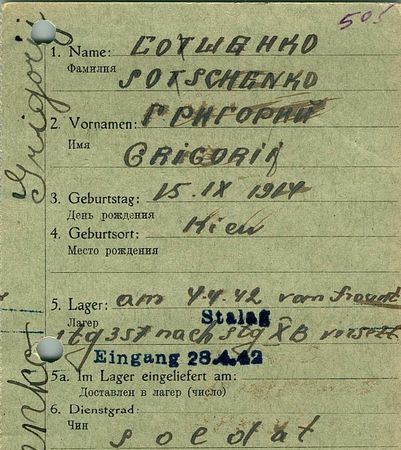 505
1. Name: СОТЩЕНКО
Фамилия SOTSCHENKO
2. Vornamen: ГРИГОРИЙ
Имя
GRIGORII
3. Geburtstag: 15. IX 1914
День рождения
4. Geburtsort: Kiew
Место рождения
5. Lager: am 4.4.42 vom
Лагер Stalag
nach XB
Eingang 28.4.42
5a. Im Lager eingeliefert am:
Доставлен в лагер (число)
6. Dienstgrad:
Чин soldat
Grigorij
enko